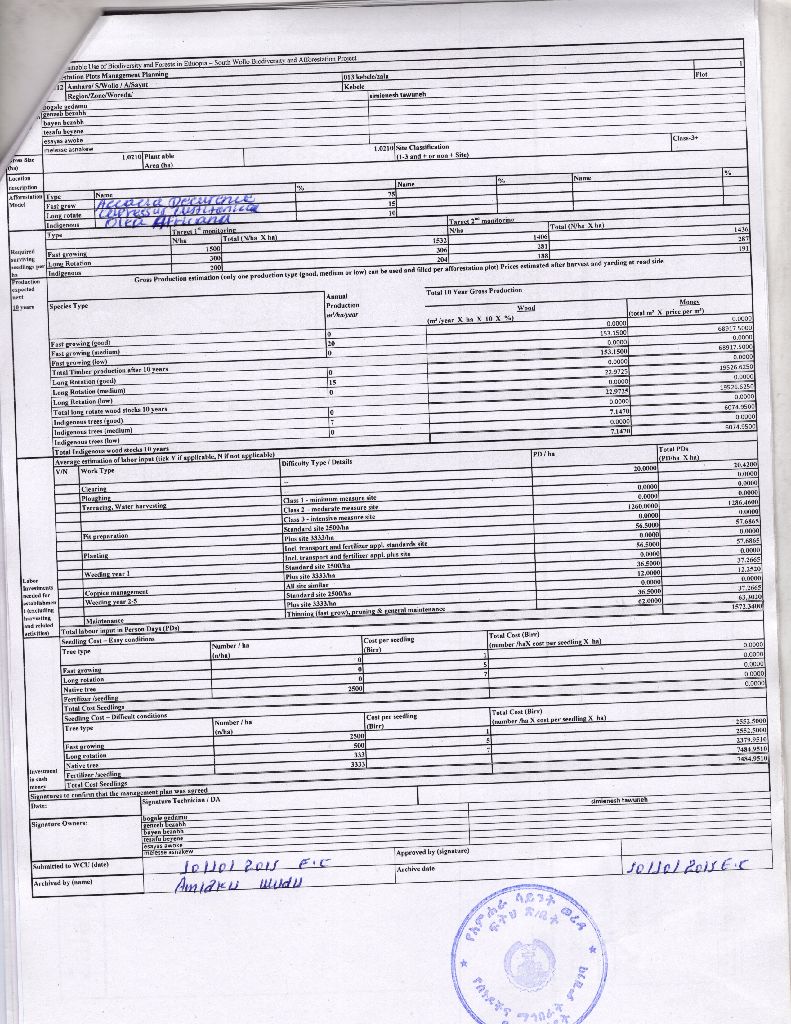 ainable Use of Biodiversity and Forests in Ethiopia – South Wollo Biodiversity and Afforestation Project
estation Plots Management Planning 1
12 Amhara/ S/Wollo / A/Sayut 013 kebele/zala Plot
Region/Zone/Woreda/ Kebele
bogale gedamu simienesh tawuneh
genneh bezabh
bayen bezabh
terafu beyene
essyas awoke
melesse asnakew
Gross Size (ha) 1.0210 Plant able Area (ha) 1.0210 Site Classification (1-3 and + or non + Site) Class-3+
Location description
Afforestation Model Type Name % Name % Name %
Fast grow Accacia Decurence 75
Long rotate Cupressus Lustitanica 15
Indigenous Olea Africana 10
Required surviving seedlings per ha Type Target 1st monitoring Target 2nd monitoring
N/ha Total (N/ha X ha) N/ha Total (N/ha X ha)
Fast growing 1500 1532 1406 1436
Long Rotation 300 306 281 287
Indigenous 200 204 188 191
Production expected next 10 years Gross Production estimation (only one production type (good, medium or low) can be used and filled per afforestation plot) Prices estimated after harvest and yarding at road side
Species Type Annual Production m³/ha/year Total 10 Year Gross Production
Wood (m³ /year X ha X 10 X %) Money (total m³ X price per m³)
Fast growing (good) 0 0.0000 0.0000
Fast growing (medium) 20 153.1500 68917.5000
Fast growing (low) 0 0.0000 0.0000
Total Timber production after 10 years 153.1500 68917.5000
Long Rotation (good) 0 0.0000 0.0000
Long Rotation (medium) 15 22.9725 19526.6250
Long Rotation (low) 0 0.0000 0.0000
Total long rotate wood stocks 10 years 22.9725 19526.6250
Indigenous trees (good) 0 0.0000 0.0000
Indigenous trees (medium) 7 7.1470 6074.9500
Indigenous trees (low) 0 0.0000 0.0000
Total Indigenous wood stocks 10 years 7.1470 6074.9500
Average estimation of labor input (tick V if applicable, N if not applicable)
V/N Work Type Difficulty Type / Details PD / ha Total PDs (PD/ha X ha)
Clearing -- 20.0000 20.4200
Ploughing -- 0.0000
Terracing, Water harvesting Class 1 - minimum measure site 0.0000 0.0000
Class 2 - moderate measure site 0.0000 0.0000
Class 3 - intensive measure site 1260.0000 1286.4600
Pit preparation Standard site 2500/ha 0.0000 0.0000
Plus site 3333/ha 56.5000 57.6865
Planting Incl. transport and fertilizer appl. standards site 0.0000 0.0000
Incl. transport and fertilizer appl. plus site 56.5000 57.6865
Weeding year 1 Standard site 2500/ha 0.0000 0.0000
Plus site 3333/ha 36.5000 37.2665
Coppice management All site similar 12.0000 12.2520
Weeding year 2-5 Standard site 2500/ha 0.0000 0.0000
Plus site 3333/ha 36.5000 37.2665
Maintenance Thinning (fast grow), pruning & general maintenance 62.0000
Total labour input in Person Days (PDs) 1572.3400
Labor investments needed for establishment (excluding harvesting and related activities)
Seedling Cost – Easy conditions
Tree type Number / ha (n/ha) Cost per seedling (Birr) Total Cost (Birr) (number /haX cost per seedling X ha)
Fast growing 0 1 0.0000
Long rotation 0 5 0.0000
Native tree 0 7 0.0000
Fertilizer /seedling 2500 0.0000
Total Cost Seedlings 0.0000
Investment in cash money Seedling Cost – Difficult conditions
Tree type Number / ha (n/ha) Cost per seedling (Birr) Total Cost (Birr) (number /ha X cost per seedling X ha)
Fast growing 2500 1 2552.5000
Long rotation 500 5 2552.5000
Native tree 333 7 2379.9510
Fertilizer /seedling 3333 7484.9510
Total Cost Seedlings 7484.9510
Signatures to confirm that the management plan was agreed
Date: Signature Technician / DA
Signature Owners: bogale gedamu simienesh tawuneh
genneh bezabh
bayen bezabh
terafu beyene
essyas awoke
melesse asnakew
Submitted to WCU (date) 10/10/2015 E.C Approved by (signature)
Archived by (name) Archive date 10/10/2015 E.C